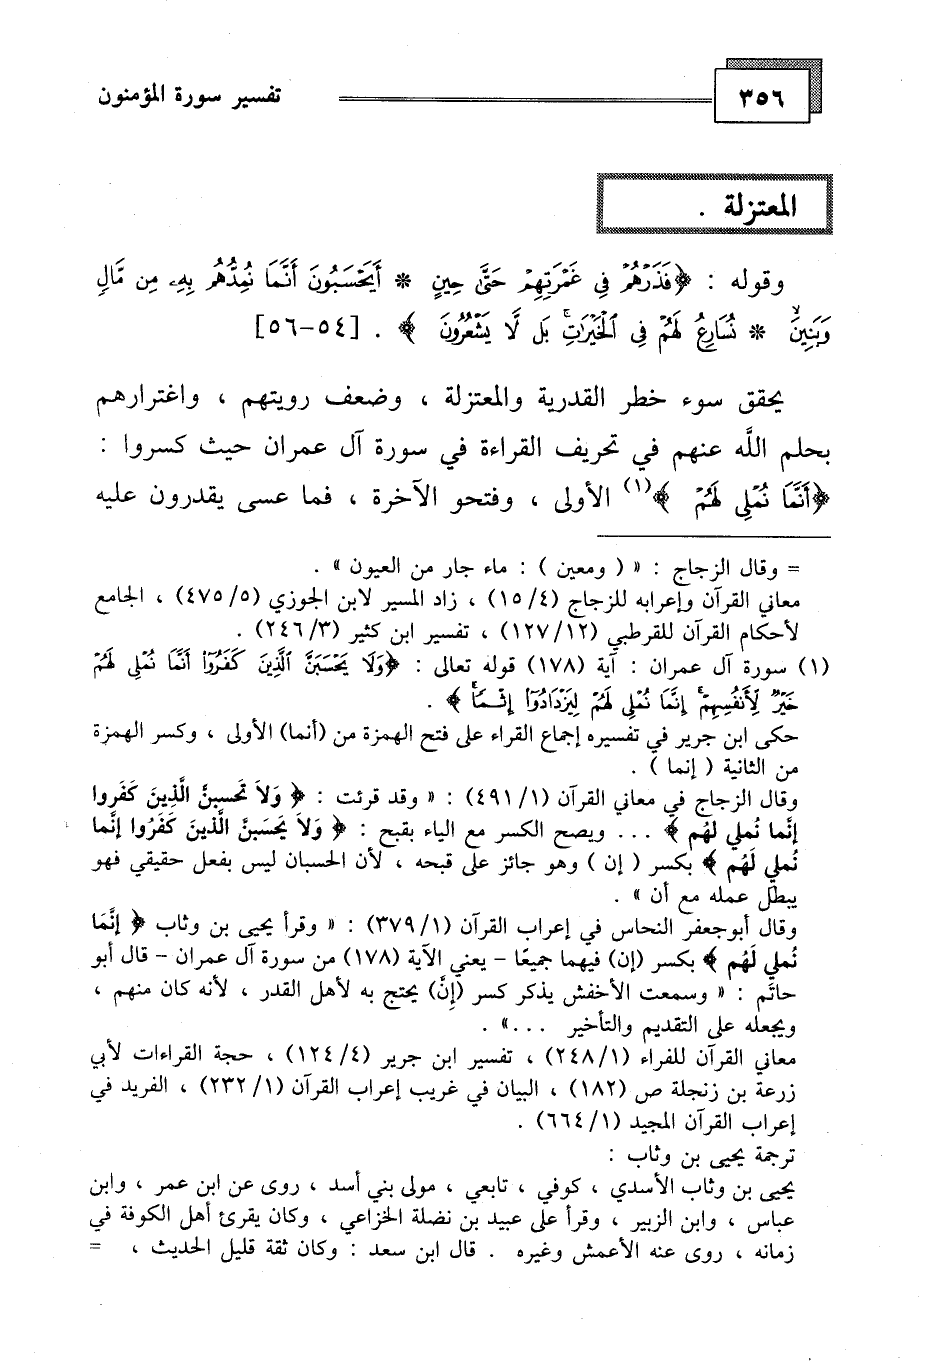 ٣٥٦
تفسير سورة المؤمنون
المعتزلة .
وقوله : ﴿فَذَرْهُمْ فِي غَمْرَتِهِمْ حَتَّىٰ حِينٍ * أَيَحْسَبُونَ أَنَّمَا نُمِدُّهُم بِهِۦ مِن مَّالٍ
وَبَنِينَ * نُسَارِعُ لَهُمْ فِي ٱلْخَيْرَٰتِ بَل لَّا يَشْعُرُونَ ﴾ . [٥٤-٥٦]
يحقق سوء خطر القدرية والمعتزلة ، وضعف رويتهم ، واغترارهم
بحلم اللَّه عنهم في تحريف القراءة في سورة آل عمران حيث كسروا :
﴿أَنَّمَا نُمْلِي لَهُمْ ﴾(١) الأولى ، وفتحو الآخرة ، فما عسى يقدرون عليه
= وقال الزجاج : « ( ومعين ) : ماء جار من العيون » .
معاني القرآن وإعرابه للزجاج (١٥/٤) ، زاد المسير لابن الجوزي (٤٧٥/٥) ، الجامع
لأحكام القرآن للقرطبي (١٢٧/١٢) ، تفسير ابن كثير (٢٤٦/٣) .
(١) سورة آل عمران : آية (١٧٨) قوله تعالى : ﴿وَلَا يَحْسَبَنَّ ٱلَّذِينَ كَفَرُوٓا۟ أَنَّمَا نُمْلِي لَهُمْ
خَيْرٌ لِّأَنفُسِهِمْ إِنَّمَا نُمْلِي لَهُمْ لِيَزْدَادُوٓا۟ إِثْمًا ﴾ .
حكى ابن جرير في تفسيره إجماع القراء على فتح الهمزة من (أنما) الأولى ، وكسر الهمزة
من الثانية ( إنما ) .
وقال الزجاج في معاني القرآن (٤٩١/١) : « وقد قرئت : ﴿ وَلاَ تَحسبنَّ الَّذِينَ كَفَروا
إنَّما نُملي لهُم ﴾ ... ويصح الكسر مع الياء بقبح : ﴿ وَلاَ يَحَسَبنَّ الَّذينَ كَفَرُوا إنَّما
نُملي لَهُم ﴾ بكسر ( إن ) وهو جائز على قبحه ، لأن الحسبان ليس بفعل حقيقي فهو
يبطل عمله مع أن » .
وقال أبوجعفر النحاس في إعراب القرآن (٣٧٩/١) : « وقرأ يحيى بن وثاب ﴿ إنَّمَا
نُملي لَهُم ﴾ بكسر (إن) فيهما جميعًا – يعني الآية (١٧٨) من سورة آل عمران – قال أبو
حاتم : « وسمعت الأخفش يذكر كسر (إنَّ) يحتج به لأهل القدر ، لأنه كان منهم ،
ويجعله على التقديم والتأخير ...» .
معاني القرآن للفراء (٢٤٨/١) ، تفسير ابن جرير (١٢٤/٤) ، حجة القراءات لأبي
زرعة بن زنجلة ص (١٨٢) ، البيان في غريب إعراب القرآن (٢٣٢/١) ، الفريد في
إعراب القرآن المجيد (٦٦٤/١) .
ترجمة يحيى بن وثاب :
يحيى بن وثاب الأسدي ، كوفي ، تابعي ، مولى بني أسد ، روى عن ابن عمر ، وابن
عباس ، وابن الزبير ، وقرأ على عبيد بن نضلة الخزاعي ، وكان يقرئ أهل الكوفة في
زمانه ، روى عنه الأعمش وغيره . قال ابن سعد : وكان ثقة قليل الحديث ، =